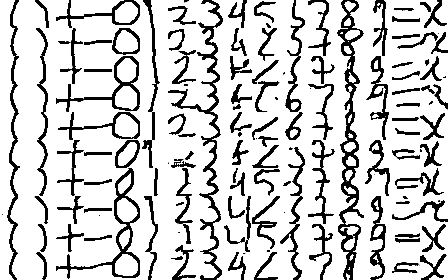 ( ) + - 0 1 2 3 4 5 6 7 8 9 = x
( ) + - 0 1 2 3 4 5 6 7 8 9 = x
( ) + - 0 1 2 3 4 5 6 7 8 9 = x
( ) + - 0 1 2 3 4 5 6 7 8 9 = x
( ) + - 0 1 2 3 4 5 6 7 8 9 = x
( ) + - 0 1 3 4 5 6 7 8 9 = x
( ) + - 0 1 2 3 4 5 6 7 8 9 = x
( ) + - 0 1 2 3 4 5 6 7 8 9 = x
( ) + - 0 1 2 3 4 5 6 7 8 9 = x
( ) + - 0 1 2 3 4 5 6 7 8 9 = x